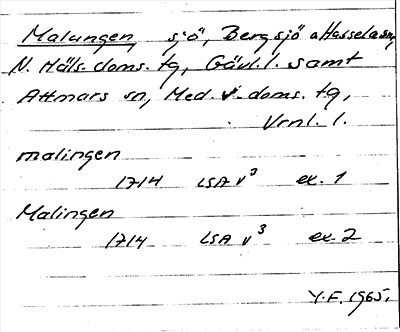 Malungen, sjö, Bergsjö o Hassela snr,
N. Häls. doms. tg, Gävl. l. samt
Attmars sn, Med. v. doms. tg,
Vrnl. l.
malingen
1714 LSA v³ ex. 1
Malingen
1714 LSA v³ ex. 2
Y.F. 1965.